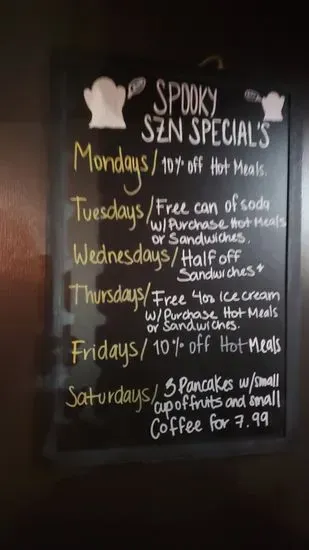 SPOOKY
SZN SPECIAL'S
Mondays/ 10% off Hot Meals.
Tuesdays/ Free can of soda
w/ Purchase Hot Meals
or Sandwiches.
Wednesdays/ Half off
Sandwiches*
Thursdays/ Free 4oz ice cream
w/ Purchase Hot Meals
or Sandwiches.
Fridays/ 10% off Hot Meals
Saturdays/ 3 Pancakes w/small
cup of fruits and small
Coffee for 7.99